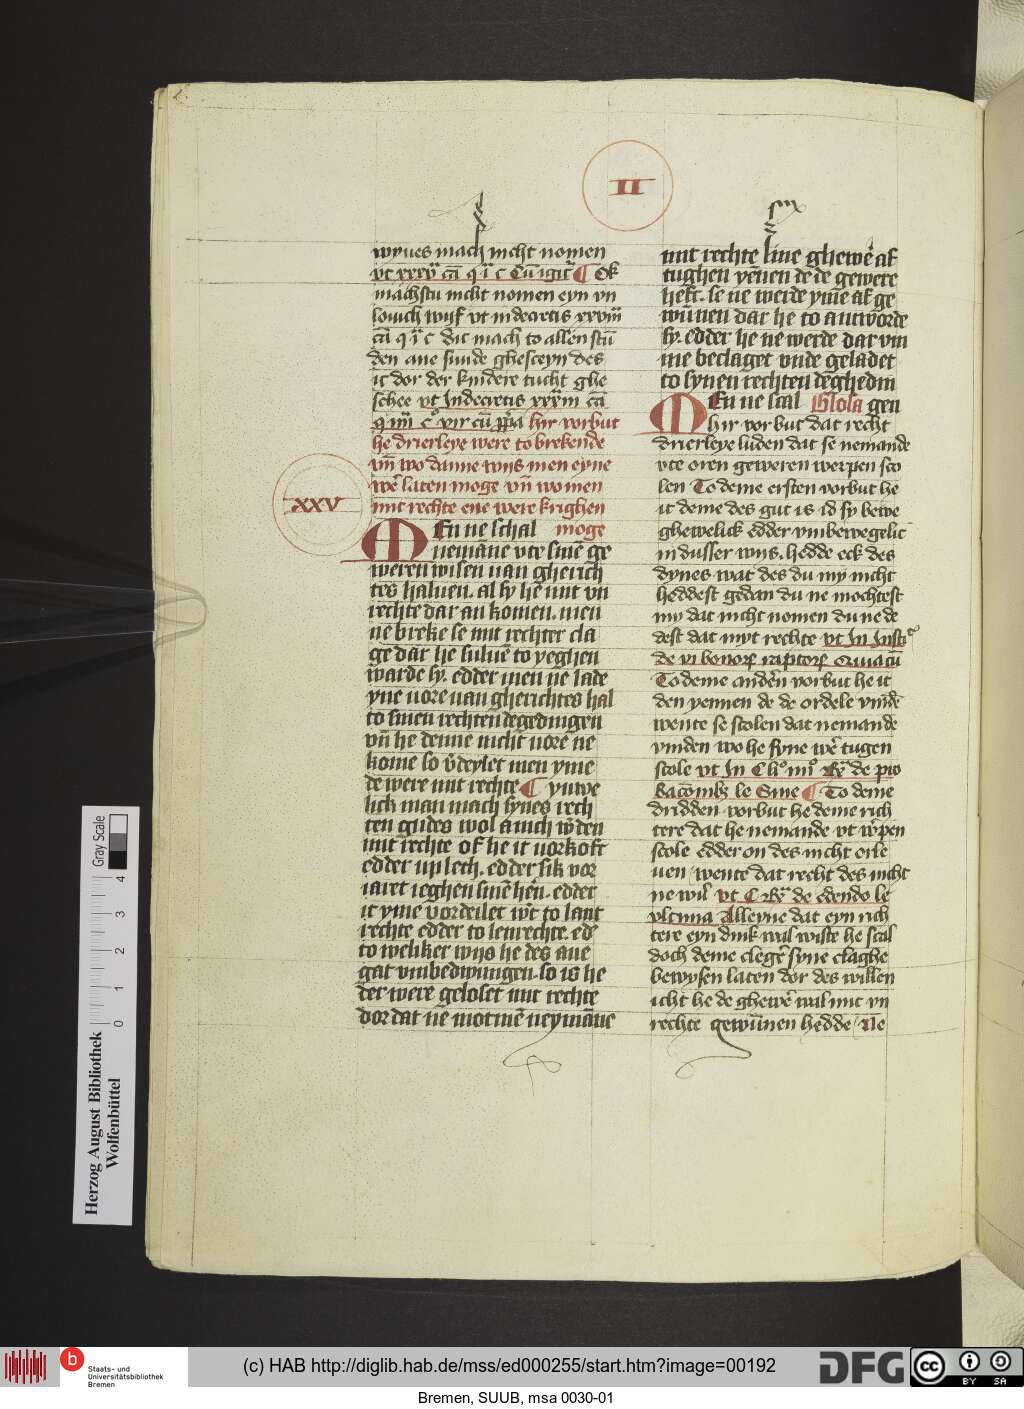 II
wyues mach nicht nomen
vt xxxv cā q i c Cū igit̄ ¶ Ok
machstu nicht nomen eyn vn
louich wyf vt in decretis xxviij
cā q i c dit mach to allen stū
den ane sunde ghesceyn des
it dor der kindere tucht ghe
schee vt In decretis xxxij cā
q iiij c° vir cū ppā hir vorbut
he drierleye were to brekende
vn̄ wo danne wijs men eyne
wē laten moge vn̄ wo men
mit rechte ene were krighen
moge
XXV
Men ne schal
nemāne vte sinē ge
weren wisen uan gherich
tes haluen. al sy he mit vn
rechte dar an komen. men
ne breke se mit rechter cla
ge dar he suluē to yeghen
warde sy. edder men ne lade
yne uore uan gherichtes hal
to sinen rechten degedingen
vn̄ he denne nicht uore ne
kome so v̄deylet men yme
de were mit rechte ¶ ynwe
lich man mach synes rech
ten gudes wol anich w̄den
mit rechte of he it uorkoft
edder uplech. edder sik vor
iaret ieghen sinē hēn. edder
it yme vordeilet w̄t to lant
rechte edder to lenrechte. ed̄
to weliker wijs he des ane
gat vmbedwungen. so is he
der were geloset mit rechte
dor dat ne motmē neymāne
mit rechte sine ghewē af
tughen yēnen de de gewere
heft. se ne werde ymē af ge
wūnen dar he to antworde
sy. edder he ne werde dar vm
me beclaget vnde geladet
to synen rechten deghedin
gen
Men ne scal Glosa
hir vor but dat recht
drierleye luden dat se nemande
vte oren geweren werpen sco
len To deme ersten vorbut he
it deme des gut is id sy bewe
ghewelick edder vmbewegelic
in dusser wijs. hedde eck des
dynes wat des du my nicht
heddest gedan du ne mochtest
my dat nicht nomen du ne de
dest dat myt rechte vt In Insti
de vi bonorꝝ raptorꝝ Quia cū
To deme andēn vorbut he it
den yennen de de ordele vindē
wente se scolen dat nemande
vinden wo he syne wē tugen
scole vt In C li° iiij° Rꝫ de pro
bacōnibꝫ le Sine ¶ To deme
dridden vorbut he deme rich
tere dat he nemande vt w̄pen
scole edder on des nicht orle
uen wente dat recht des nicht
ne wil vt C Rꝫ de edendo le
vltima Alleyne dat eyn rich
tere eyn dink wal wiste he scal
doch deme clegē syne claghe
bewysen laten dor des willen
icht he de ghewē wal mit vn
rechte gewūnen hedde Ne
Herzog August Bibliothek
Wolfenbüttel
0 1 2 3 4
Gray Scale
b
Staats- und
Universitätsbibliothek
Bremen
(c) HAB http://diglib.hab.de/mss/ed000255/start.htm?image=00192
DFG
cc BY SA
Bremen, SUUB, msa 0030-01